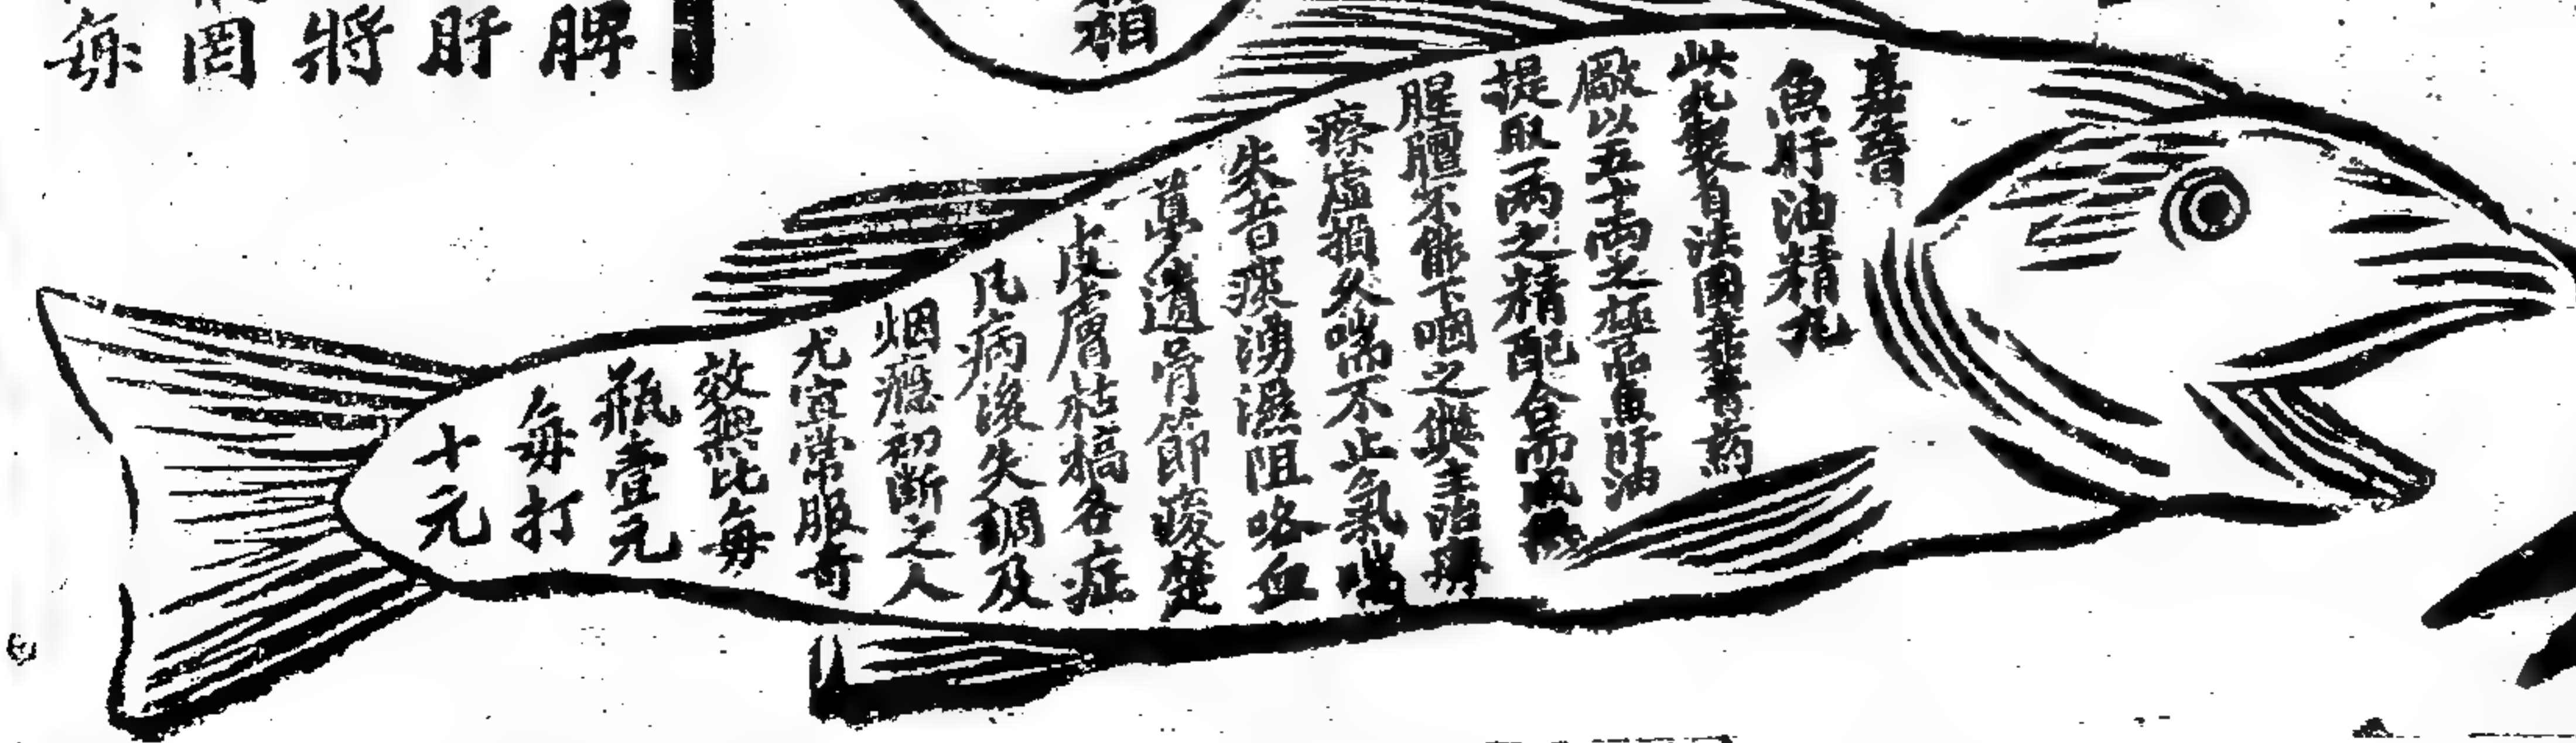 箱
脾
肝
將
囯
每
嘉晉
魚肝油精丸
此丸製自法國 藥
廠以五十両之極品魚肝油
提取一両之精配合而成
腥膻不能下咽之弊主治
瘵虛損久喘不止氣喘
失音痰湧濕阻咯血
夢遺骨節痠楚
皮膚枯槁各症
凡病後失調及
烟癮初斷之人
尤宜常服奇
效無比每
瓶壹元
每打
十元